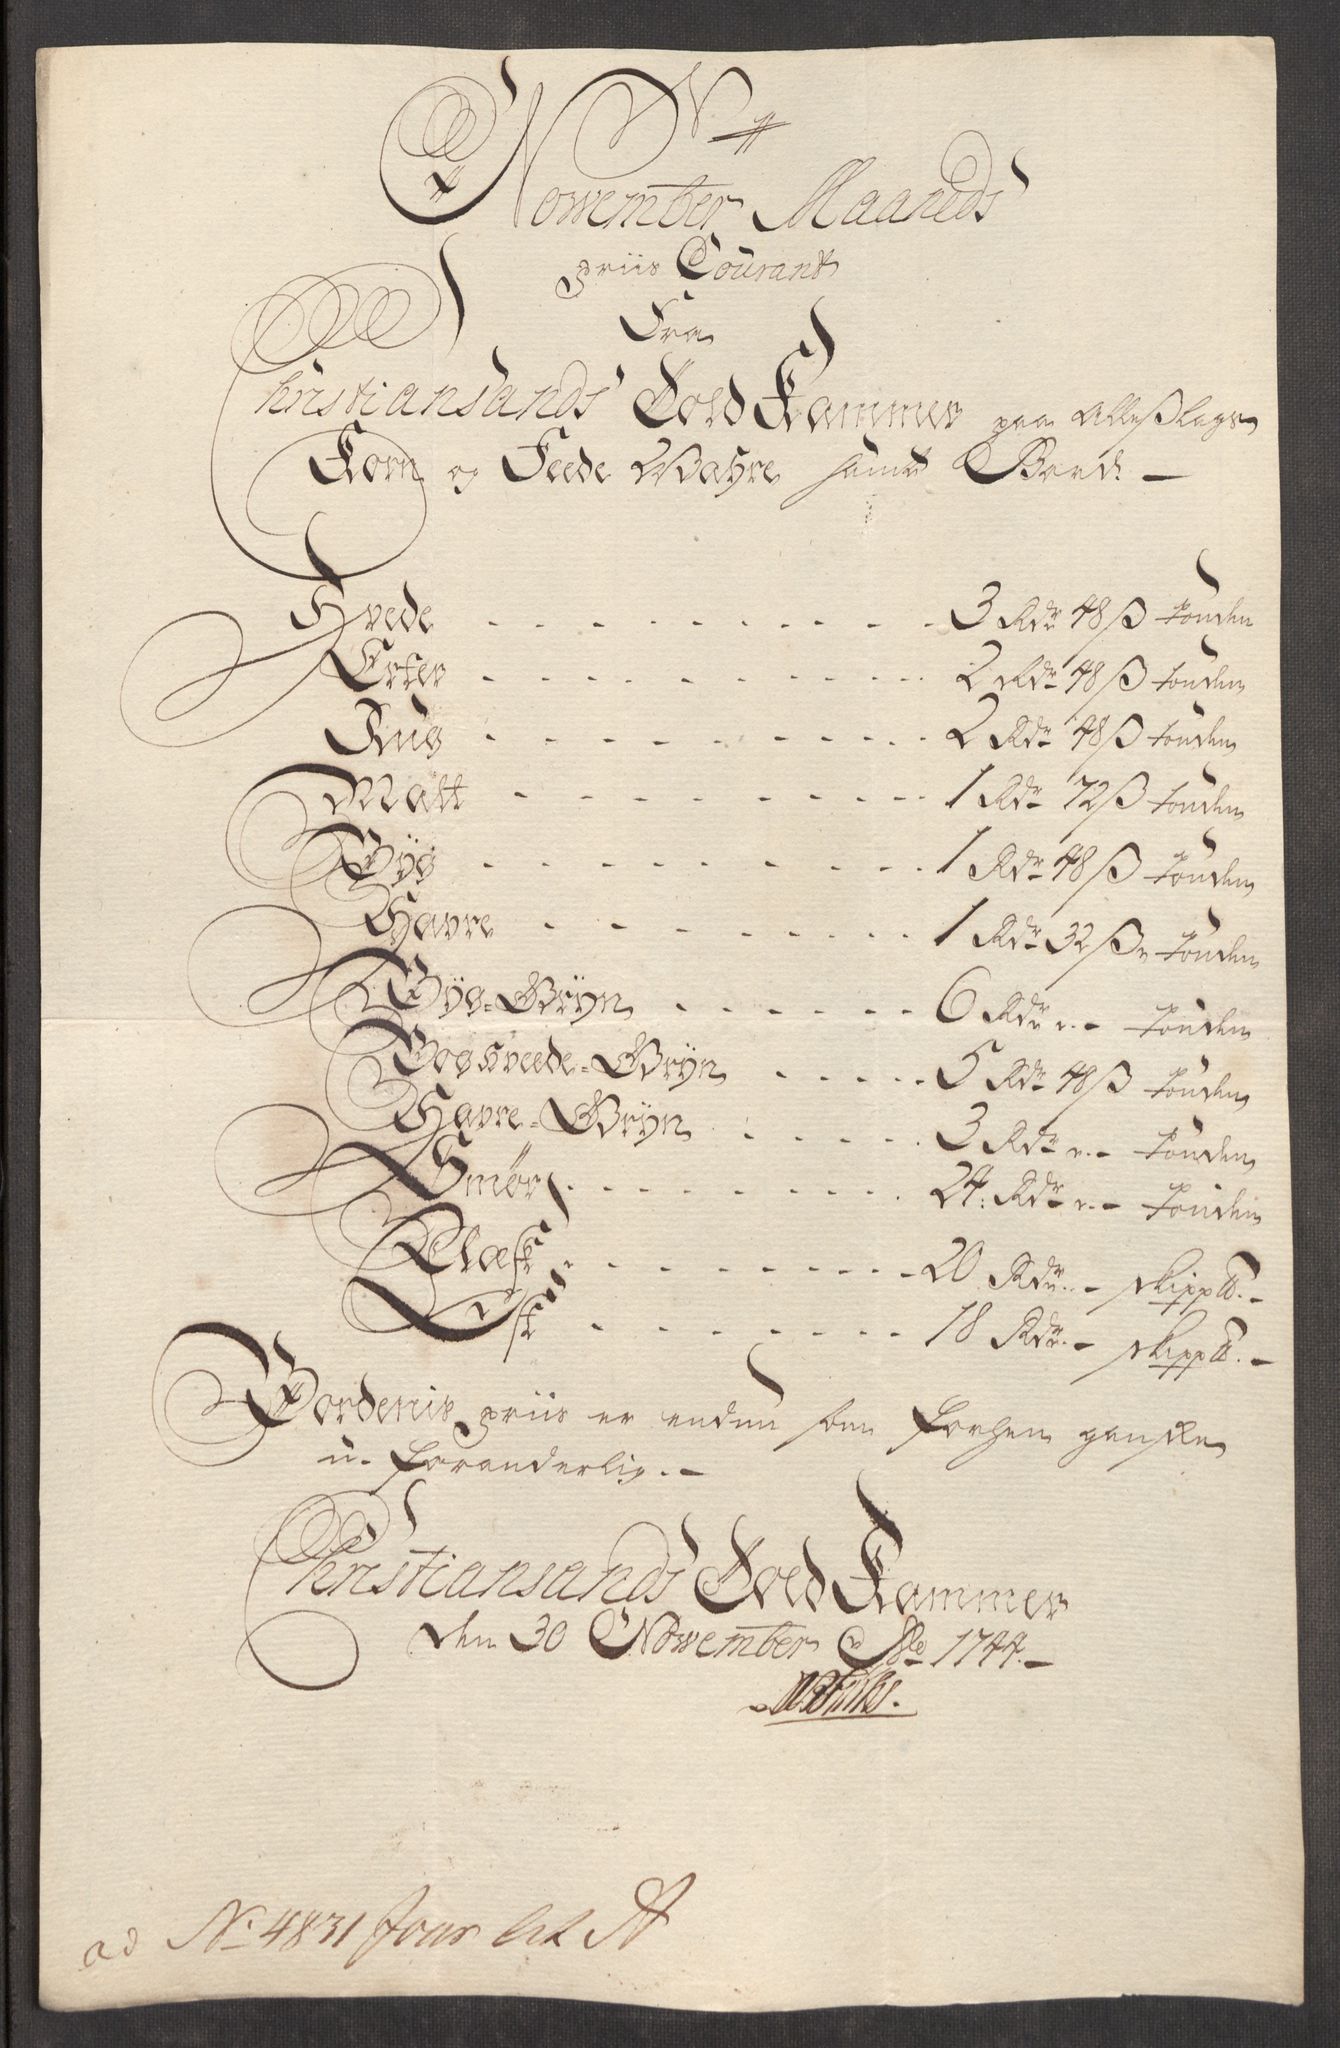 November Maaneds
priis Courant
Fra
Christiansands Told Kammer paa alle slags
Korn og Feede Wahre samt Bord. —
Hvede - - - - - - - - - - 3 Rdr 48 ß tonden
Erter - - - - - - - - - - 2 Rdr 48 ß tonden
Rug - - - - - - - - - - 2 Rdr 48 ß tonden
Malt - - - - - - - - - 1 Rdr 72 ß tonden
Byg - - - - - - - - - 1 Rdr 48 ß tonden
Havre - - - - - - - - - 1 Rdr 32 ß tonden
Byg-Gryn - - - - - - 6 Rdr „ - tonden
Boghveede-Gryn - - - - - 5 Rdr 48 ß tonden
Havre-Gryn - - - - - 3 Rdr „ - tonden
Smør - - - - - - - - - 24 Rdr „ - tonden
Flæsk - - - - - - - - 20 Rdr - skipp ℔. -
Ost - - - - - - - 18 Rdr - skipp ℔. -
Bordenis priis er endnu som forhen ganske
u-foranderlig. —
Christiansands Told Kammer
den 30 November Ao 1744. —
ad No 4831 Jour lit A